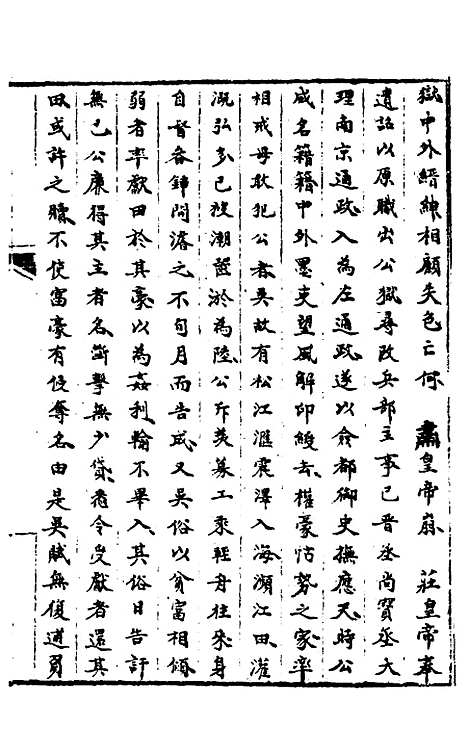 獄中外縉紳相顧失色亡何　肅皇帝崩　莊皇帝奉
遺詔以原職出公獄尋改兵部主事已晉丞尚寶丞大
理南京通政入為左通政遂以僉都御史撫應天時公
威名籍籍中外墨吏望風解印綬去權豪怙勢之家率
相戒毋敢犯公者吳故有松江滙震澤入海瀕江田灌
溉弘多已被潮齧淤為陸公斥羨募工乘輕舟往來身
自督畚鍤問落之不旬月而告成又吳俗以貧富相傾
弱者率獻田於其豪以為姦利輸不畢入其俗日告訐
無已公廉得其主者名斷擊無少貸悉令受獻者還其
田或許之贖不使富豪有侵奪名由是吳賦無復逋負